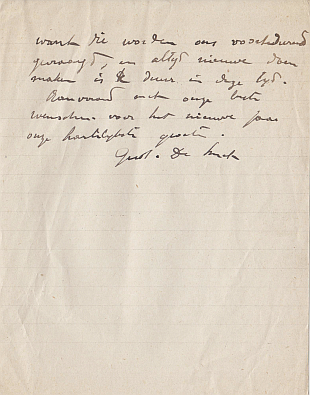 want die worden ons voortdurend
gevraagd, en altijd nieuwe doen
maken is te duur in deze tijd.
Aanvaard met onze beste
wenschen voor het nieuwe jaar
onze hartelijkste groeten.
Gust. De